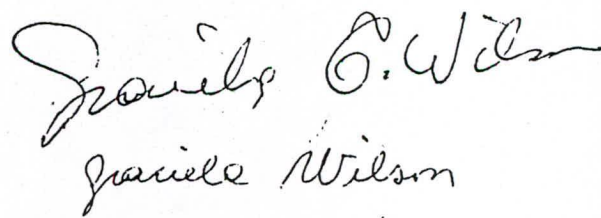 Graciela G. Wilson
graciela Wilson